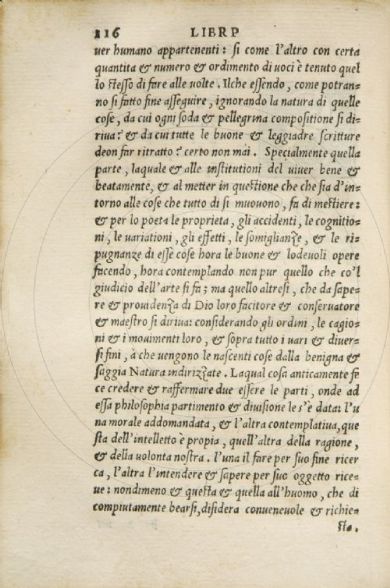 116 LIBRP
uer humano appartenenti: si come l'altro con certa
quantita & numero & ordimento di uoci è tenuto quel
lo stesso di fare alle uolte. Ilche essendo, come potran-
no si fatto fine asseguire, ignorando la natura di quelle
cose, da cui ogni soda & pellegrina compositione si di-
riua? & da cui tutte le buone & leggiadre scritture
deon far ritratto? certo non mai. Specialmente quella
parte, laquale & alle institutioni del uiuer bene &
beatamente, & al metter in questione che che sia d'in-
torno alle cose che tutto di si muouono, fa di mestiere:
& per lo poeta le proprieta, gli accidenti, le cognitio-
ni, le uariationi, gli effetti, le somiglianze, & le ri-
pugnanze di esse cose hora le buone & lodeuoli opere
facendo, hora contemplando non pur quello che co'l
giudicio dell'arte si fa; ma quello altresi, che da sape-
re & prouidenza di Dio loro facitore & conseruatore
& maestro si diriua: considerando gli ordini, le cagio-
ni & i mouimenti loro, & sopra tutto i uari & diuer-
si fini, à che uengono le nascenti cose dalla benigna &
saggia Natura indirizzate. Laqual cosa anticamente fe
ce credere & raffermare due essere le parti, onde ad
essa philosophia partimento & diuisione le s'è data: l'u
na morale addomandata, & l'altra contemplatiua, que
sta dell'intelletto è propia, quell'altra della ragione,
& della uolonta nostra. L'una il fare per suo fine ricer
ca, l'altra l'intendere & sapere per suo oggetto rice-
ue: nondimeno & questa & quella all'huomo, che di
compiutamente bearsi, disidera conueneuole & richie-
sta.